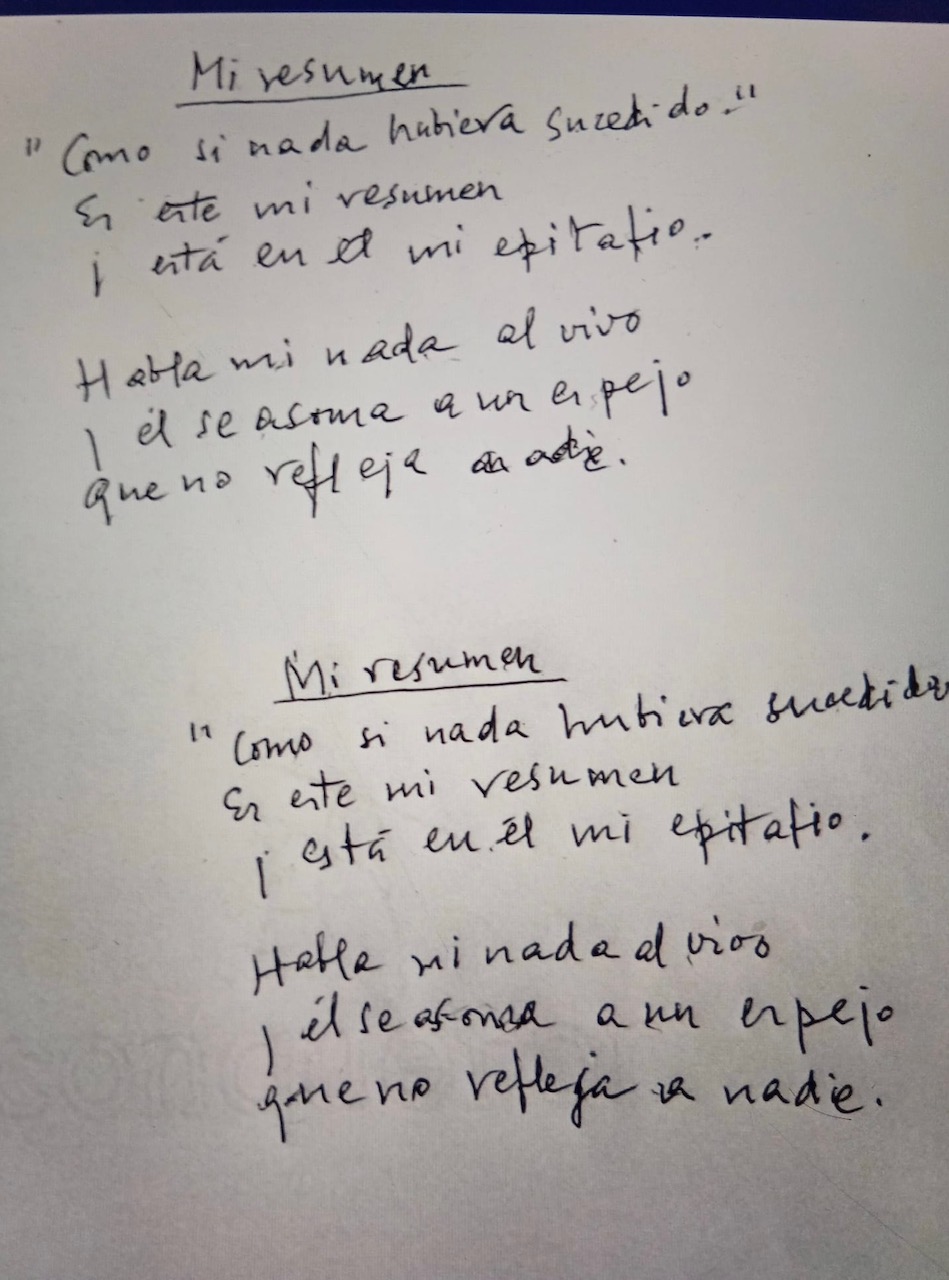 Mi resumen
"Como si nada hubiera sucedido."
Es este mi resumen
i está en él mi epitafio.
Habla mi nada al vivo
i él se asoma a un espejo
que no refleja a nadie.
Mi resumen
"Como si nada hubiera sucedido
Es este mi resumen
i está en él mi epitafio.
Habla mi nada al vivo
i él se asoma a un espejo
que no refleja a nadie.